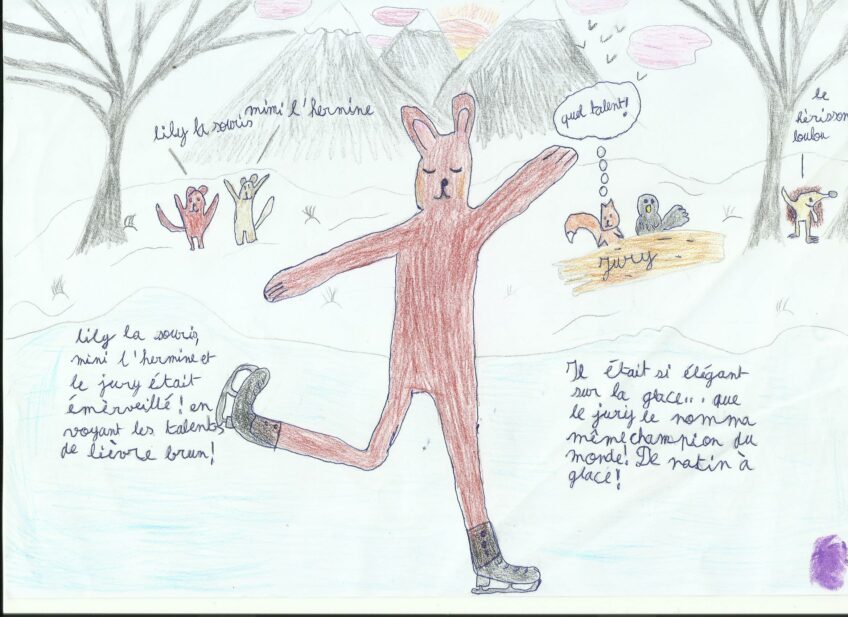 lily la souris
mimi l'hermine
quel talent!
le
hèrisson
loulou
Jury
lily la souris,
mini l'hermine et
le jury était
émèrveillé! en
voyant les talents
de lièvre brun!
Il était si élégant
sur la glace... que
le jury le nomma
même champion du
monde! De natin à
glace!